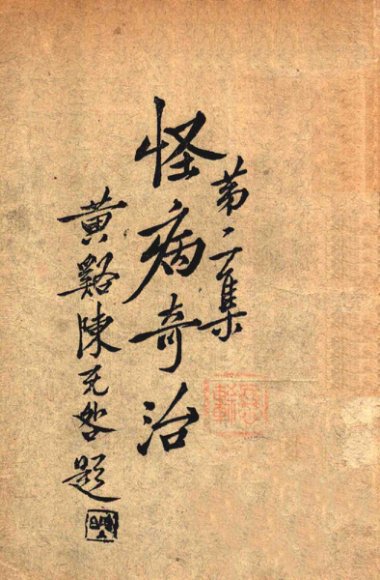 第二集
怪病奇治
黃谿陳无咎題